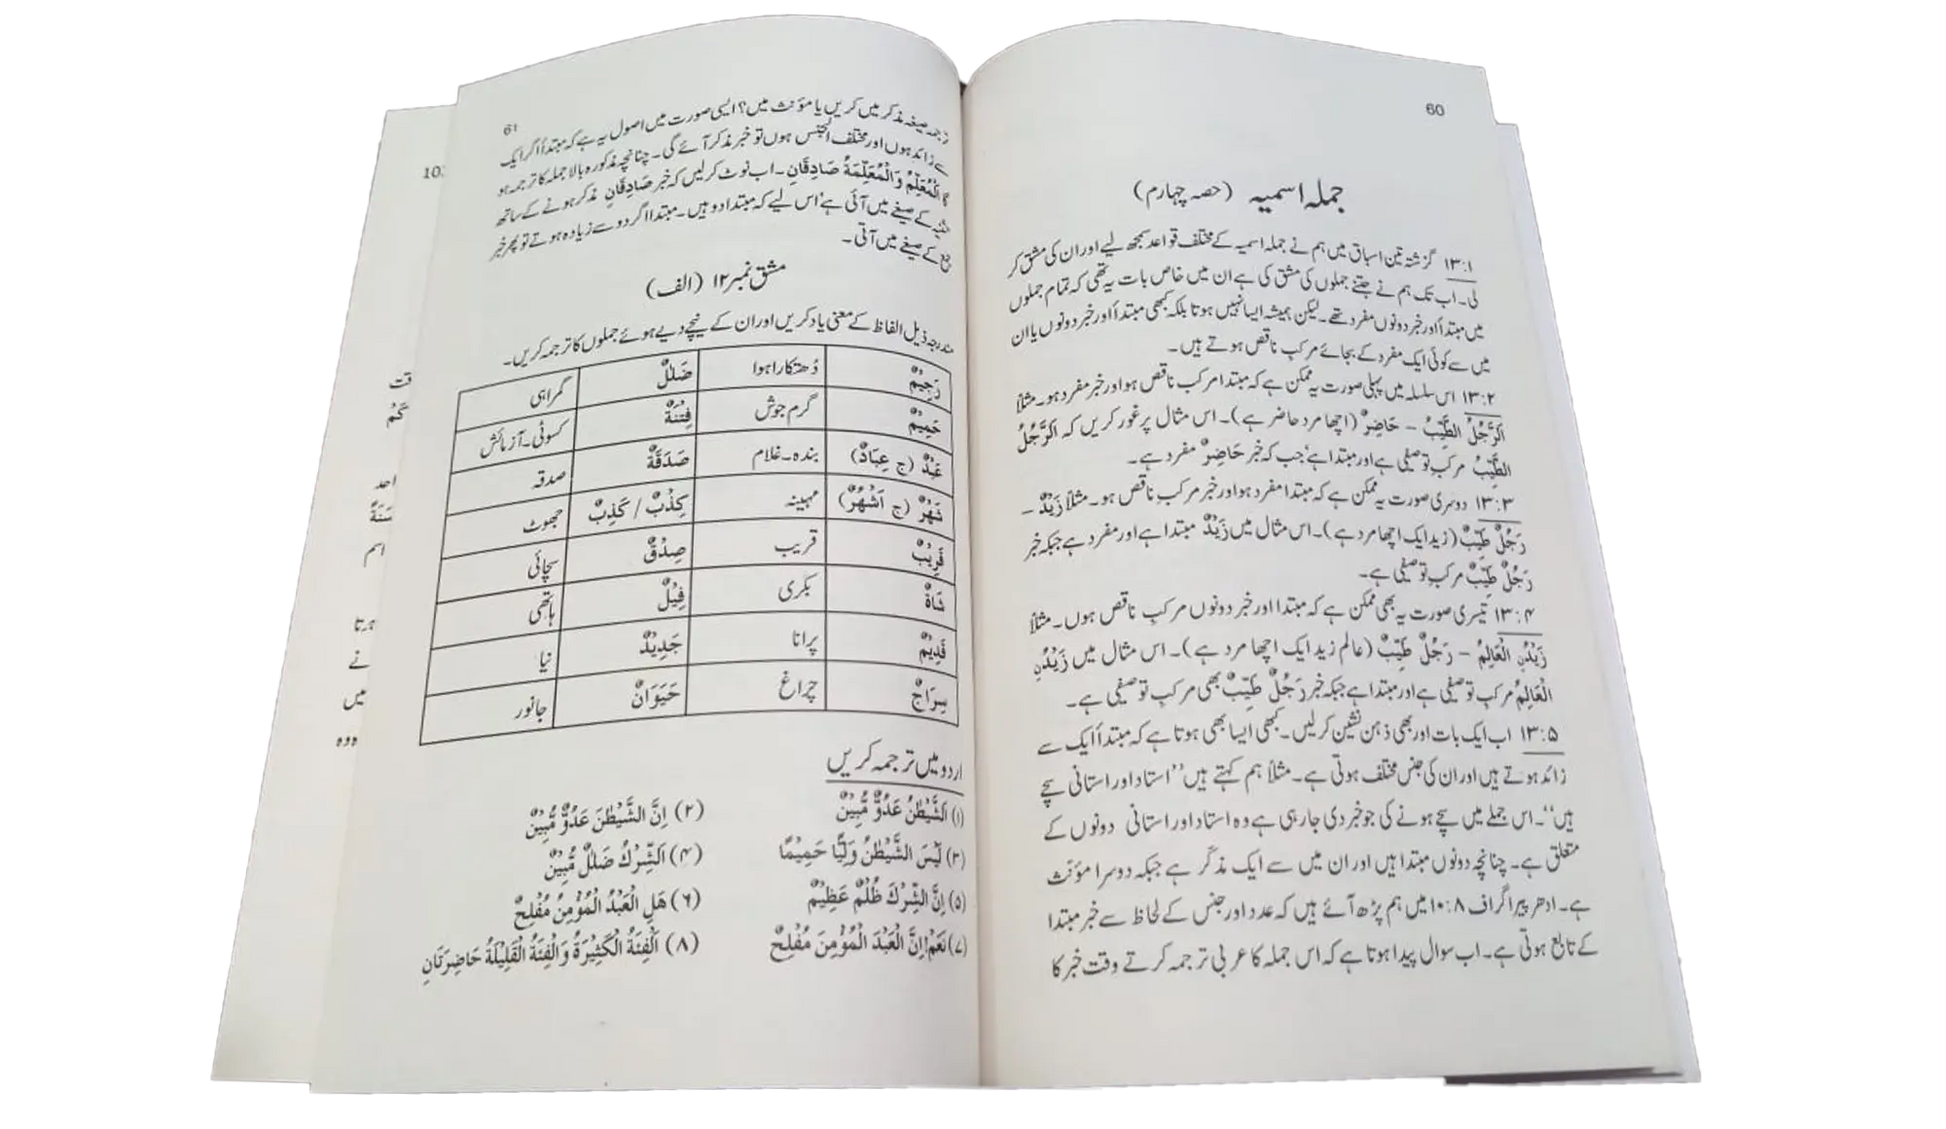 60
جملہ اسمیہ (حصہ چہارم)
۱۳:۱ گزشتہ تین اسباق میں ہم نے جملہ اسمیہ کے مختلف قواعد سمجھ لیے اور ان کی مشق کر
لی۔ اب تک ہم نے جتنے جملوں کی مشق کی ہے ان میں خاص بات یہ تھی کہ تمام جملوں
میں مبتدأ اور خبر دونوں مفرد تھے۔ لیکن ہمیشہ ایسا نہیں ہوتا بلکہ کبھی مبتدأ اور خبر دونوں یا ان
میں سے کوئی ایک مفرد کے بجائے مرکب ناقص ہوتے ہیں۔
۱۳:۲ اس سلسلہ میں پہلی صورت یہ ممکن ہے کہ مبتدا مرکب ناقص ہو اور خبر مفرد ہو۔ مثلاً
اَلرَّجُلُ الطَّیِّبُ – حَاضِرٌ (اچھا مرد حاضر ہے)۔ اس مثال پر غور کریں کہ اَلرَّجُلُ
الطَّیِّبُ مرکب توصیفی ہے اور مبتدا ہے، جب کہ خبر حَاضِرٌ مفرد ہے۔
۱۳:۳ دوسری صورت یہ ممکن ہے کہ مبتدا مفرد ہو اور خبر مرکب ناقص ہو۔ مثلاً زَیْدٌ –
رَجُلٌ طَیِّبٌ (زید ایک اچھا مرد ہے)۔ اس مثال میں زَیْدٌ مبتدا ہے اور مفرد ہے جبکہ خبر
رَجُلٌ طَیِّبٌ مرکب توصیفی ہے۔
۱۳:۴ تیسری صورت یہ بھی ممکن ہے کہ مبتدا اور خبر دونوں مرکب ناقص ہوں۔ مثلاً
زَیْدُنِ الْعَالِمُ – رَجُلٌ طَیِّبٌ (عالم زید ایک اچھا مرد ہے)۔ اس مثال میں زَیْدُنِ
الْعَالِمُ مرکب توصیفی ہے اور مبتدا ہے جبکہ خبر رَجُلٌ طَیِّبٌ بھی مرکب توصیفی ہے۔
۱۳:۵ اب ایک بات اور بھی ذہن نشین کرلیں۔ کبھی ایسا بھی ہوتا ہے کہ مبتدأ ایک سے
زائد ہوتے ہیں اور ان کی جنس مختلف ہوتی ہے۔ مثلاً ہم کہتے ہیں ’’استاد اور استانی سچے
ہیں‘‘۔ اس جملے میں سچے ہونے کی جو خبر دی جارہی ہے وہ استاد اور استانی دونوں کے
متعلق ہے۔ چنانچہ دونوں مبتدا ہیں اور ان میں سے ایک مذکّر ہے جبکہ دوسرا مؤنث
ہے۔ ادھر پیراگراف ۱۰:۸ میں ہم پڑھ آئے ہیں کہ عدد اور جنس کے لحاظ سے خبر مبتدا
کے تابع ہوتی ہے۔ اب سوال پیدا ہوتا ہے کہ اس جملہ کا عربی ترجمہ کرتے وقت خبر کا
61
ترجمہ صیغہ مذکر میں کریں یا مؤنث میں؟ ایسی صورت میں اصول یہ ہے کہ مبتدأ اگر ایک
سے زائد ہوں اور مختلف الجنس ہوں تو خبر مذکر آئے گی۔ چنانچہ مذکورہ بالا جملہ کا ترجمہ ہو
گا اَلْمُعَلِّمُ وَالْمُعَلِّمَةُ صَادِقَانِ۔ اب نوٹ کرلیں کہ خبر صَادِقَانِ مذکر ہونے کے ساتھ
تثنیہ کے صیغے میں آئی ہے، اس لیے کہ مبتدا دو ہیں۔ مبتدا اگر دو سے زیادہ ہوتے تو پھر خبر
جمع کے صیغے میں آتی۔
مشق نمبر ۱۲ (الف)
مندرجہ ذیل الفاظ کے معنی یاد کریں اور ان کے نیچے دیے ہوئے جملوں کا ترجمہ کریں۔
رَجِیْمٌ دُھتکارا ہوا ضَلٰلٌ گمراہی
حَمِیْمٌ گرم جوش فِتْنَةٌ کسوٹی۔ آزمائش
عَبْدٌ (ج عِبَادٌ) بندہ۔ غلام صَدَقَةٌ صدقہ
شَهْرٌ (ج اَشْهُرٌ) مہینہ کِذْبٌ / کَذِبٌ جھوٹ
قَرِیْبٌ قریب صِدْقٌ سچائی
شَاةٌ بکری فِیْلٌ ہاتھی
قَدِیْمٌ پرانا جَدِیْدٌ نیا
سِرَاجٌ چراغ حَیَوَانٌ جانور
اردو میں ترجمہ کریں
(۱) اَلشَّیْطٰنُ عَدُوٌّ مُّبِیْنٌ (۲) اِنَّ الشَّیْطٰنَ عَدُوٌّ مُّبِیْنٌ
(۳) لَیْسَ الشَّیْطٰنُ وَلِیًّا حَمِیْمًا (۴) اَلشِّرْكُ ضَلٰلٌ مُّبِیْنٌ
(۵) اِنَّ الشِّرْكَ ظُلْمٌ عَظِیْمٌ (۶) هَلِ الْعَبْدُ الْمُؤْمِنُ مُفْلِحٌ
(۷) نَعَمْ! اِنَّ الْعَبْدَ الْمُؤْمِنَ مُفْلِحٌ (۸) اَلْفِئَةُ الْكَثِیْرَةُ وَالْفِئَةُ الْقَلِیْلَةُ حَاضِرَتَانِ